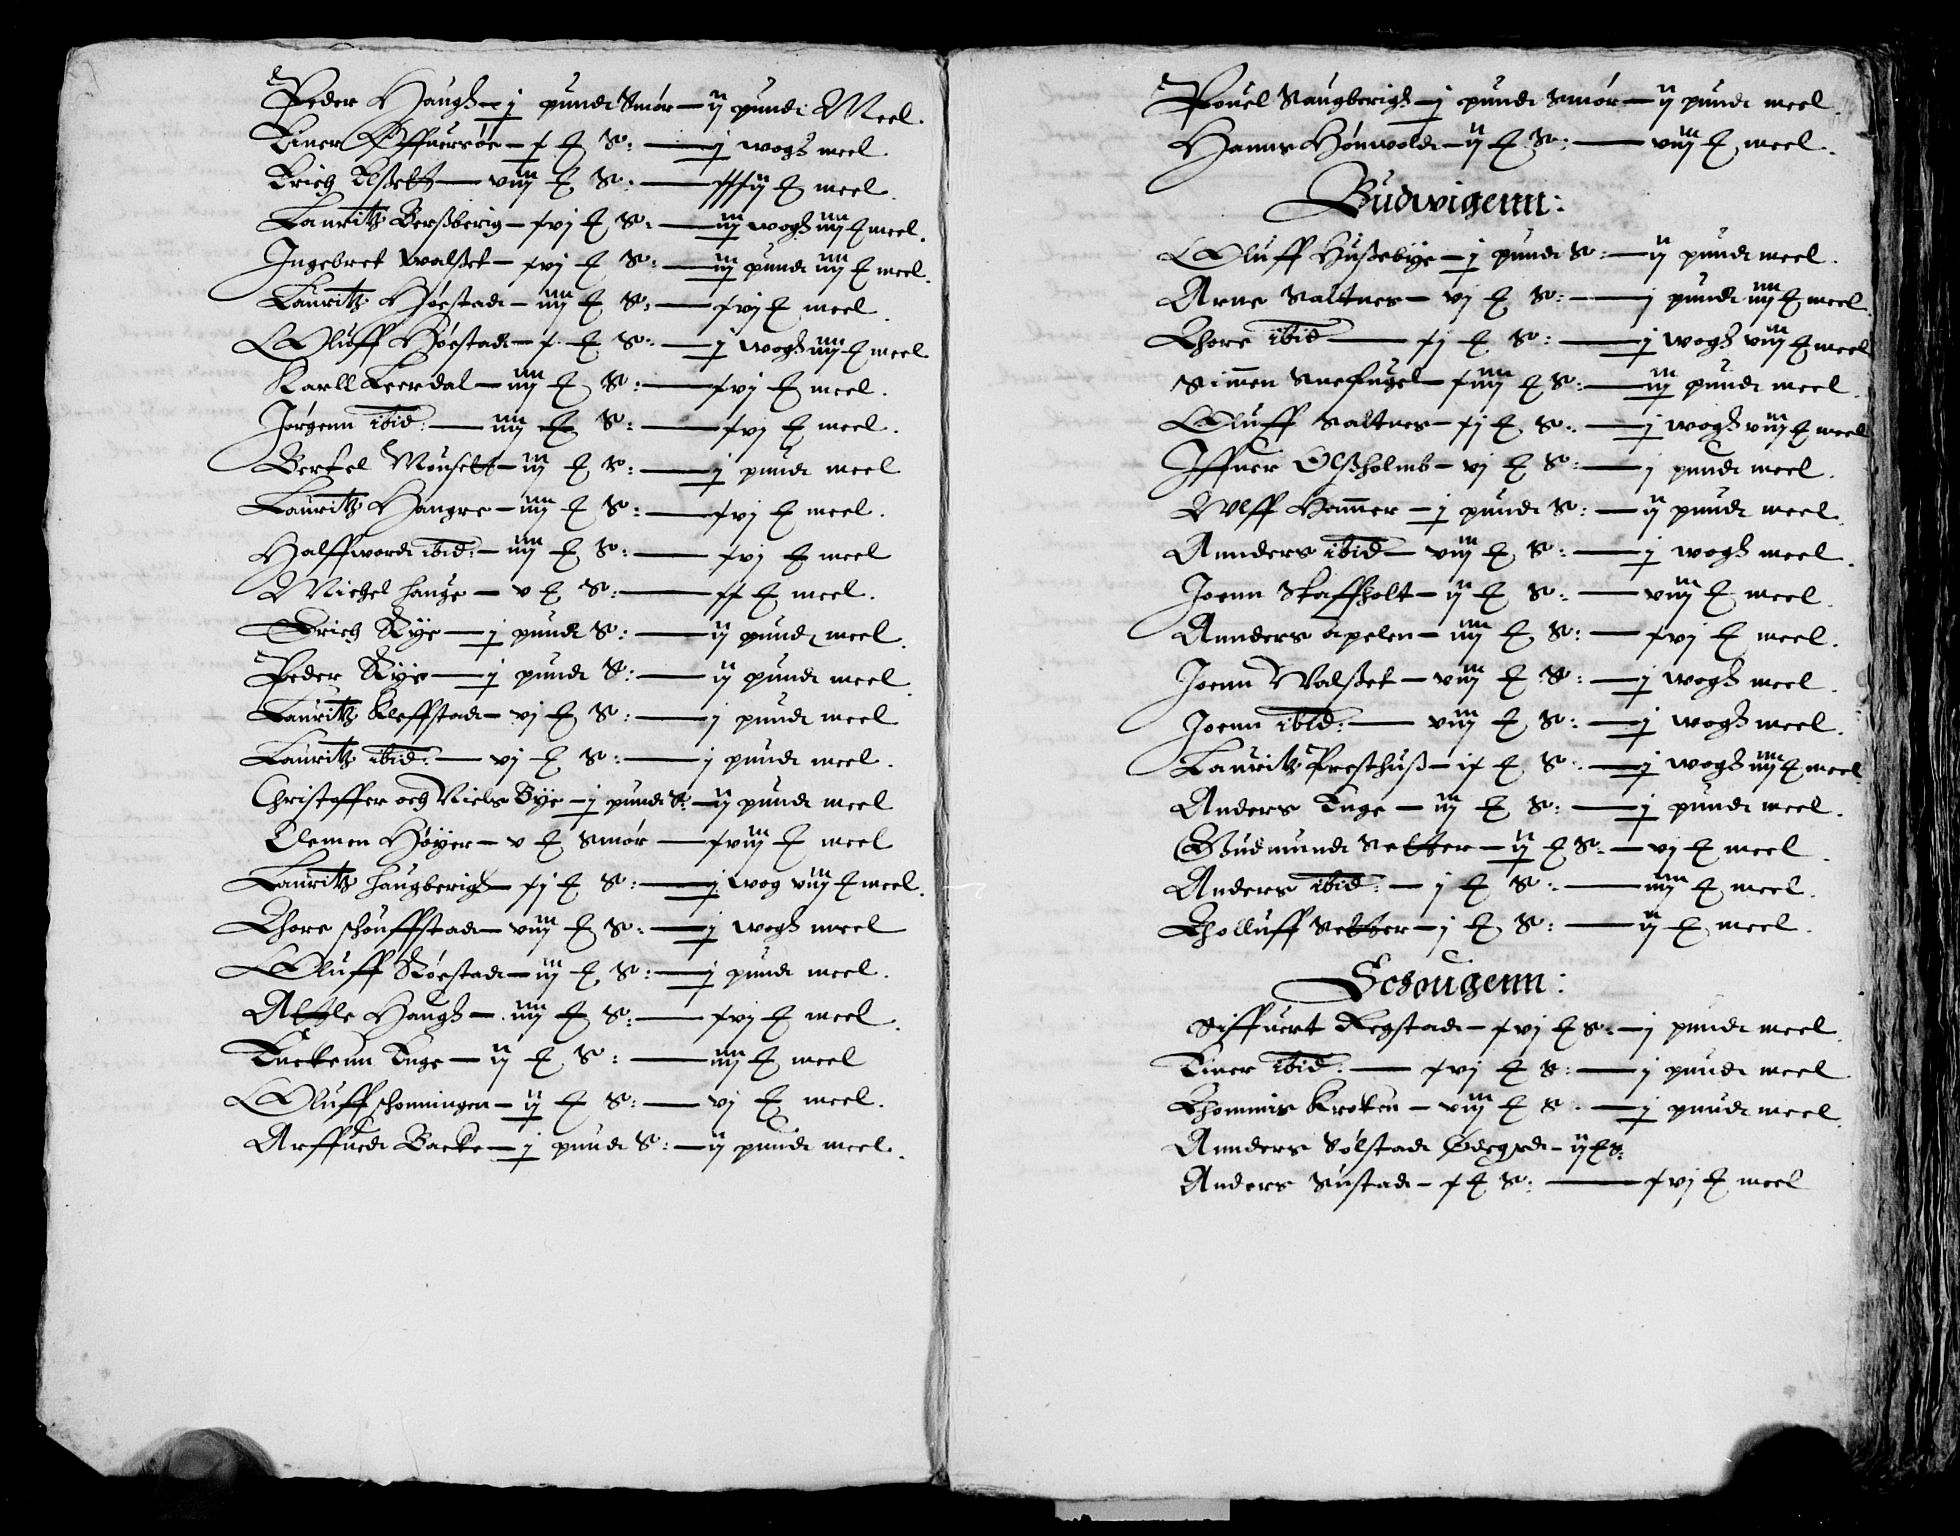 Peder Haugh – j pundt Smør – ij pundt Meel.
Einer Øffuersøe – x ℔ S: — j wogh meel
Erich Elsett — viij ℔ S: — xxxij ℔ meel
Lauritz Bersberig – xvj ℔ S: — iij wogh iiij ℔ meel.
Ingebret walset – xvj ℔ S: — iij pundt iiij ℔ meel.
Lauritz Høestadt – iiij ℔ S: — xvj ℔ meel.
Oluff Høestadt – x ℔ S: — j wogh iiij ℔ meel
Karll Leerdal – iiij ℔ S: — xvj ℔ meel.
Jørgenn ibid: — iiij ℔ S: — xvj ℔ meel.
Bertel Mousett – iij ℔ S: — j pundt meel
Lauritz Hangre – iiij ℔ S: — xvj ℔ meel.
Halffword ibid: – iiij ℔ S: — xvj ℔ meel
Michel hauge – v ℔ S: — xx ℔ meel.
Erich Rye — j pundt S: — ij pundt meel.
Peder Rye — j pundt S: — ij pundt meel.
Lauritz Kleffstadt – vj ℔ S: — j pundt meel
Lauritz ibid: — vj ℔ S: — j pundt meel.
Christoffer och Niels Bye – j pundt S: – ij pundt meel
Clemen Høyer – v ℔ Smør — xviij ℔ meel
Lauritz haugberigh – xj ℔ S: — j wog viij ℔ meel.
Thore schouffstadt – viij ℔ S: — j wogh meel
Oluff Røestadt – iij ℔ S: — j pundt meel.
Attle Haugh – iiij ℔ S: — xvj ℔ meel.
Enckenn Enge – ij ℔ S: — iiij ℔ meel
Oluff schonningen – ij ℔ S: — vj ℔ meel.
Arffuedt Backe – j pundt S: – ij pundt meel.
Pouel Saugberigh – j pundt Smør – ij pundt meel.
Hanns Hønwoldt – ij ℔ S: — viij ℔ meel.
Budwigenn:
Oluff Husebye – j pundt S: — ij pundt meel.
Arne Saltnes – vj ℔ S: — j pundt iiij ℔ meel
Thore ibid — xj ℔ S: — j wogh viij ℔ meel
Simen Snefugel – xiiij ℔ S: — iij pundt meel.
Oluff Saltnes – xj ℔ S: — j wogh viij ℔ meel
Iffuer Olsholmb – vj ℔ S: — j pundt meel.
Wlff Hammer – j pundt S: — ij pundt meel.
Annders ibid – viij ℔ S: — j wogh meel.
Joenn Skaffholt – ij ℔ S: — viij ℔ meel.
Annders apelen – iiij ℔ S: — xvj ℔ meel.
Joenn Walset – viij ℔ S: — j wogh meel.
Joenn ibid: — viij ℔ S: — j wogh meel.
Lauritz Presthuss – ix ℔ S: — j wogh iiij ℔ meel.
Anders Enge – iij ℔ S: — j pundt meel.
Gudmundt Setter – ij ℔ S: – vj ℔ meel.
Anders ibid: – j ℔ S: — iiij ℔ meel.
Tholluff Setter – j ℔ S: — ij ℔ meel.
Schougenn:
Siffuert Regstadt – xvj ℔ S: — j pundt meel.
Einer ibid: — xvj ℔ S: — j pundt meel
Thommis Kroken – viij ℔ S: — j pundt meel.
Annders Solstadt Ødegrd – ij ℔ S:
Anders Sustadt – x ℔ S: — xvj ℔ meel